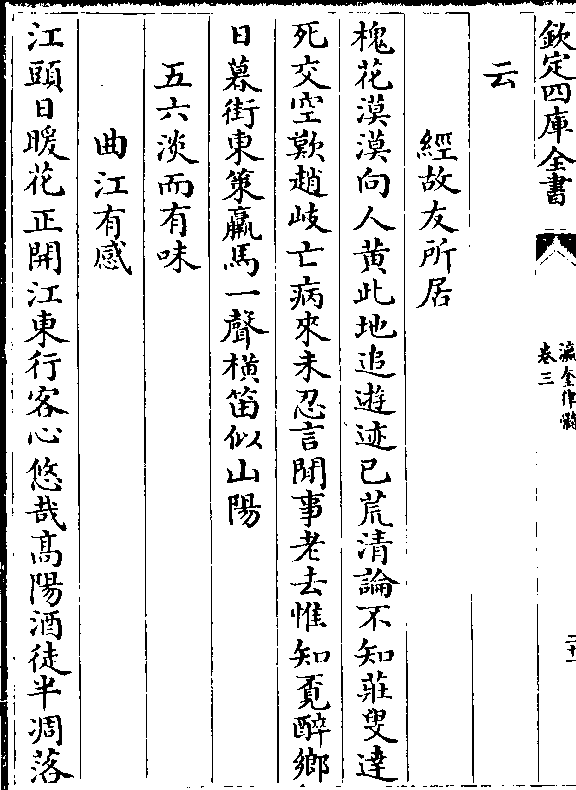 欽定四庫全書
瀛奎律髓
卷三
二十一
云
經故友所居
槐花漠漠向人黄此地追遊迹已荒清論不知莊叟達
死交空歎趙岐亡病來未忍言閒事老去惟知覔醉鄉
日暮街東策羸馬一聲橫笛似山陽
五六淡而有味
曲江有感
江頭日暖花正開江東行客心悠哉高陽酒徒半凋落